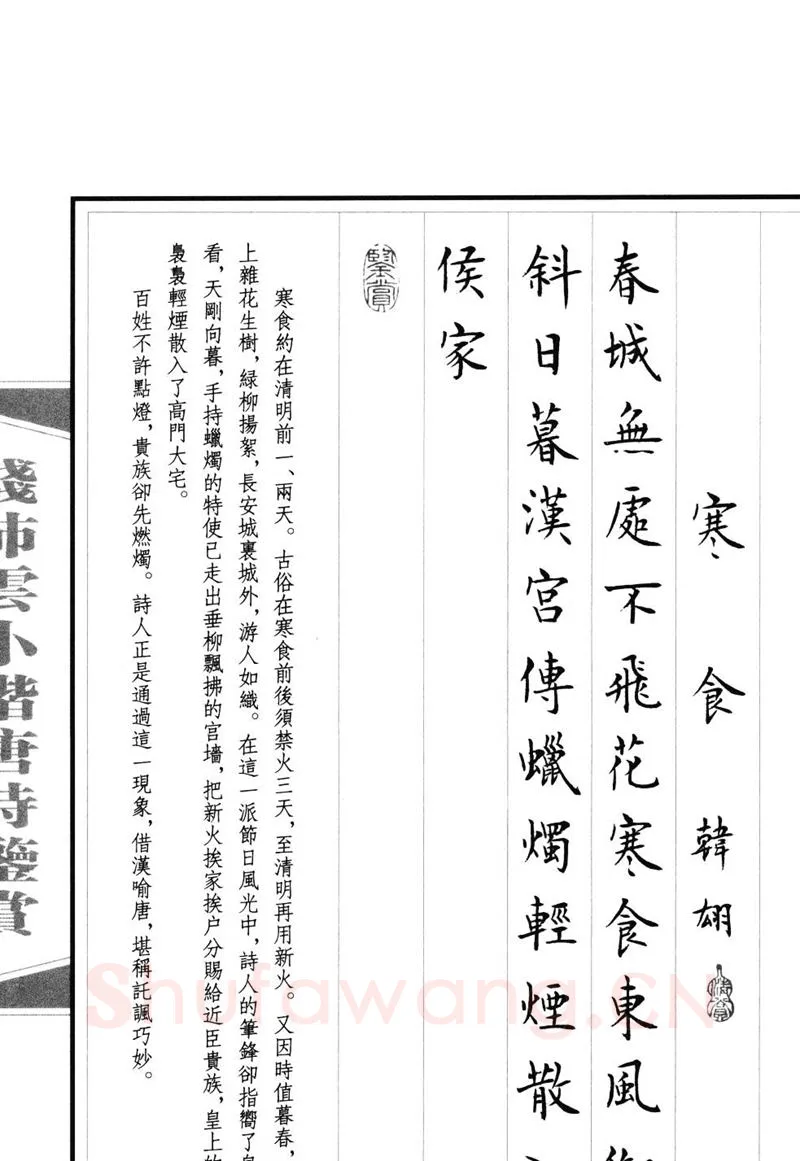 寒食
韓翃
春城無處不飛花寒食東風
斜日暮漢宮傳蠟燭輕煙散
侯家
鑒賞
寒食約在清明前一、兩天。古俗在寒食前後須禁火三天，至清明再用新火。又因時值暮春，
上雜花生樹，綠柳揚絮，長安城裏城外，游人如織。在這一派節日風光中，詩人的筆鋒卻指嚮了
看，天剛向暮，手持蠟燭的特使已走出垂柳飄拂的宮墻，把新火挨家挨户分賜給近臣貴族，皇上的
裊裊輕煙散入了高門大宅。
百姓不許點燈，貴族卻先燃燭。詩人正是通過這一現象，借漢喻唐，堪稱託諷巧妙。
錢沛雲小楷唐詩鑒賞
Shufawang.CN